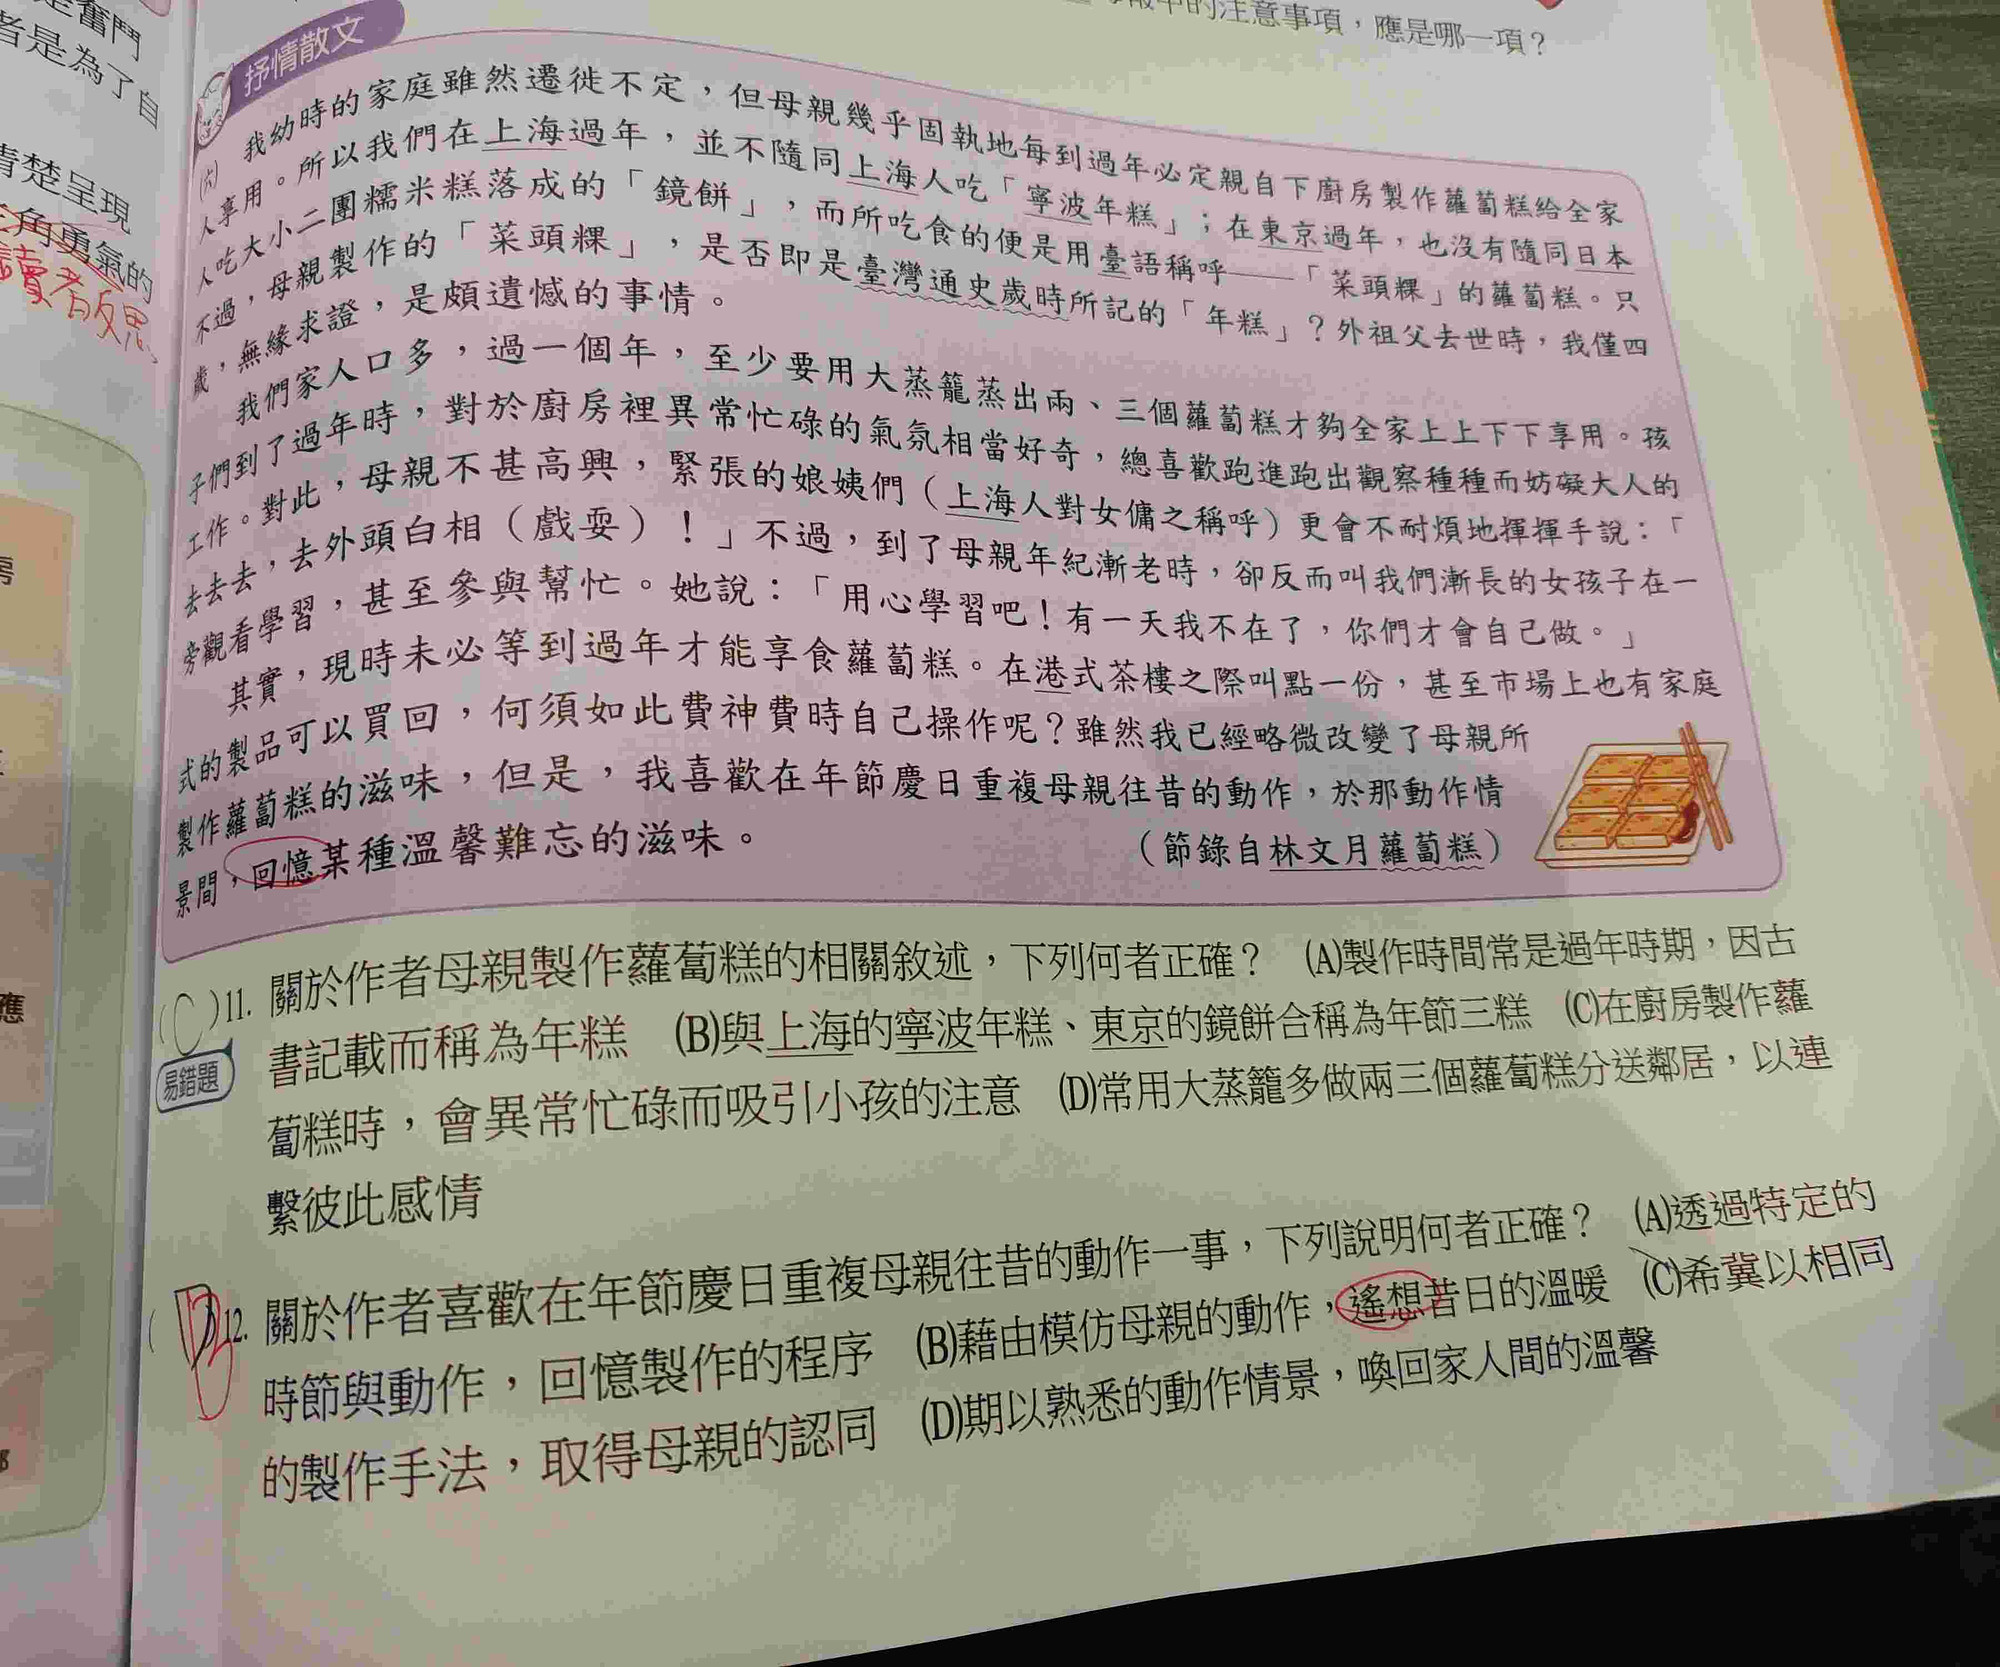 是奮鬥
者是為了自
清楚呈現
主角勇氣的
讀者反思
房
應
的注意事項，應是哪一項？
抒情散文
(六) 我幼時的家庭雖然遷徙不定，但母親幾乎固執地每到過年必定親自下廚房製作蘿蔔糕給全家
人享用。所以我們在上海過年，並不隨同上海人吃「寧波年糕」；在東京過年，也沒有隨同日本
人吃大小二團糯米糕落成的「鏡餅」，而所吃食的便是用臺語稱呼——「菜頭粿」的蘿蔔糕。只
不過，母親製作的「菜頭粿」，是否即是臺灣通史歲時所記的「年糕」？外祖父去世時，我僅四
歲，無緣求證，是頗遺憾的事情。
我們家人口多，過一個年，至少要用大蒸籠蒸出兩、三個蘿蔔糕才夠全家上上下下享用。孩
子們到了過年時，對於廚房裡異常忙碌的氣氛相當好奇，總喜歡跑進跑出觀察種種而妨礙大人的
工作。對此，母親不甚高興，緊張的娘姨們（上海人對女傭之稱呼）更會不耐煩地揮揮手說：「
去去去，去外頭白相（戲耍）！」不過，到了母親年紀漸老時，卻反而叫我們漸長的女孩子在一
旁觀看學習，甚至參與幫忙。她說：「用心學習吧！有一天我不在了，你們才會自己做。」
其實，現時未必等到過年才能享食蘿蔔糕。在港式茶樓之際叫點一份，甚至市場上也有家庭
式的製品可以買回，何須如此費神費時自己操作呢？雖然我已經略微改變了母親所
製作蘿蔔糕的滋味，但是，我喜歡在年節慶日重複母親往昔的動作，於那動作情
景間，回憶某種溫馨難忘的滋味。
（節錄自林文月蘿蔔糕）
(C)11. 關於作者母親製作蘿蔔糕的相關敘述，下列何者正確？ (A)製作時間常是過年時期，因古
易錯題
書記載而稱為年糕 (B)與上海的寧波年糕、東京的鏡餅合稱為年節三糕 (C)在廚房製作蘿
蔔糕時，會異常忙碌而吸引小孩的注意 (D)常用大蒸籠多做兩三個蘿蔔糕分送鄰居，以連
繫彼此感情
(D)12. 關於作者喜歡在年節慶日重複母親往昔的動作一事，下列說明何者正確？ (A)透過特定的
時節與動作，回憶製作的程序 (B)藉由模仿母親的動作，遙想昔日的溫暖 (C)希冀以相同
的製作手法，取得母親的認同 (D)期以熟悉的動作情景，喚回家人間的溫馨